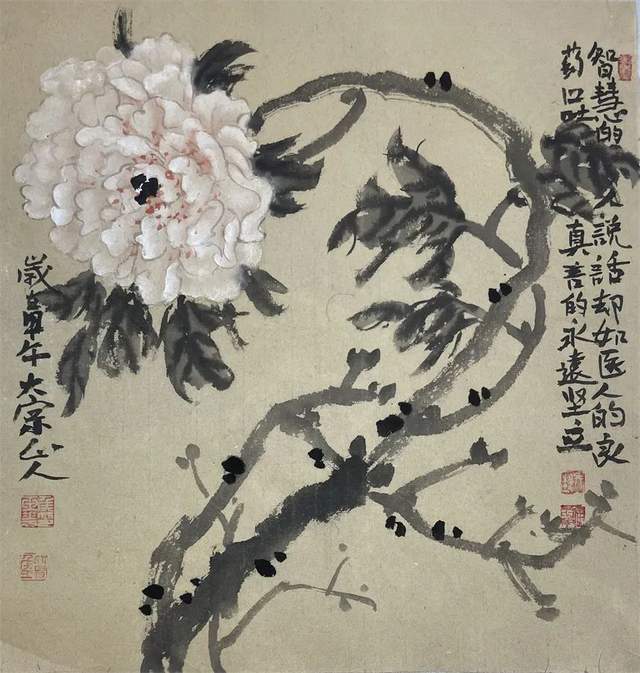 智慧的人說話却如医人的良
药口吐真言的永遠坚立
歲甲午大宗山人